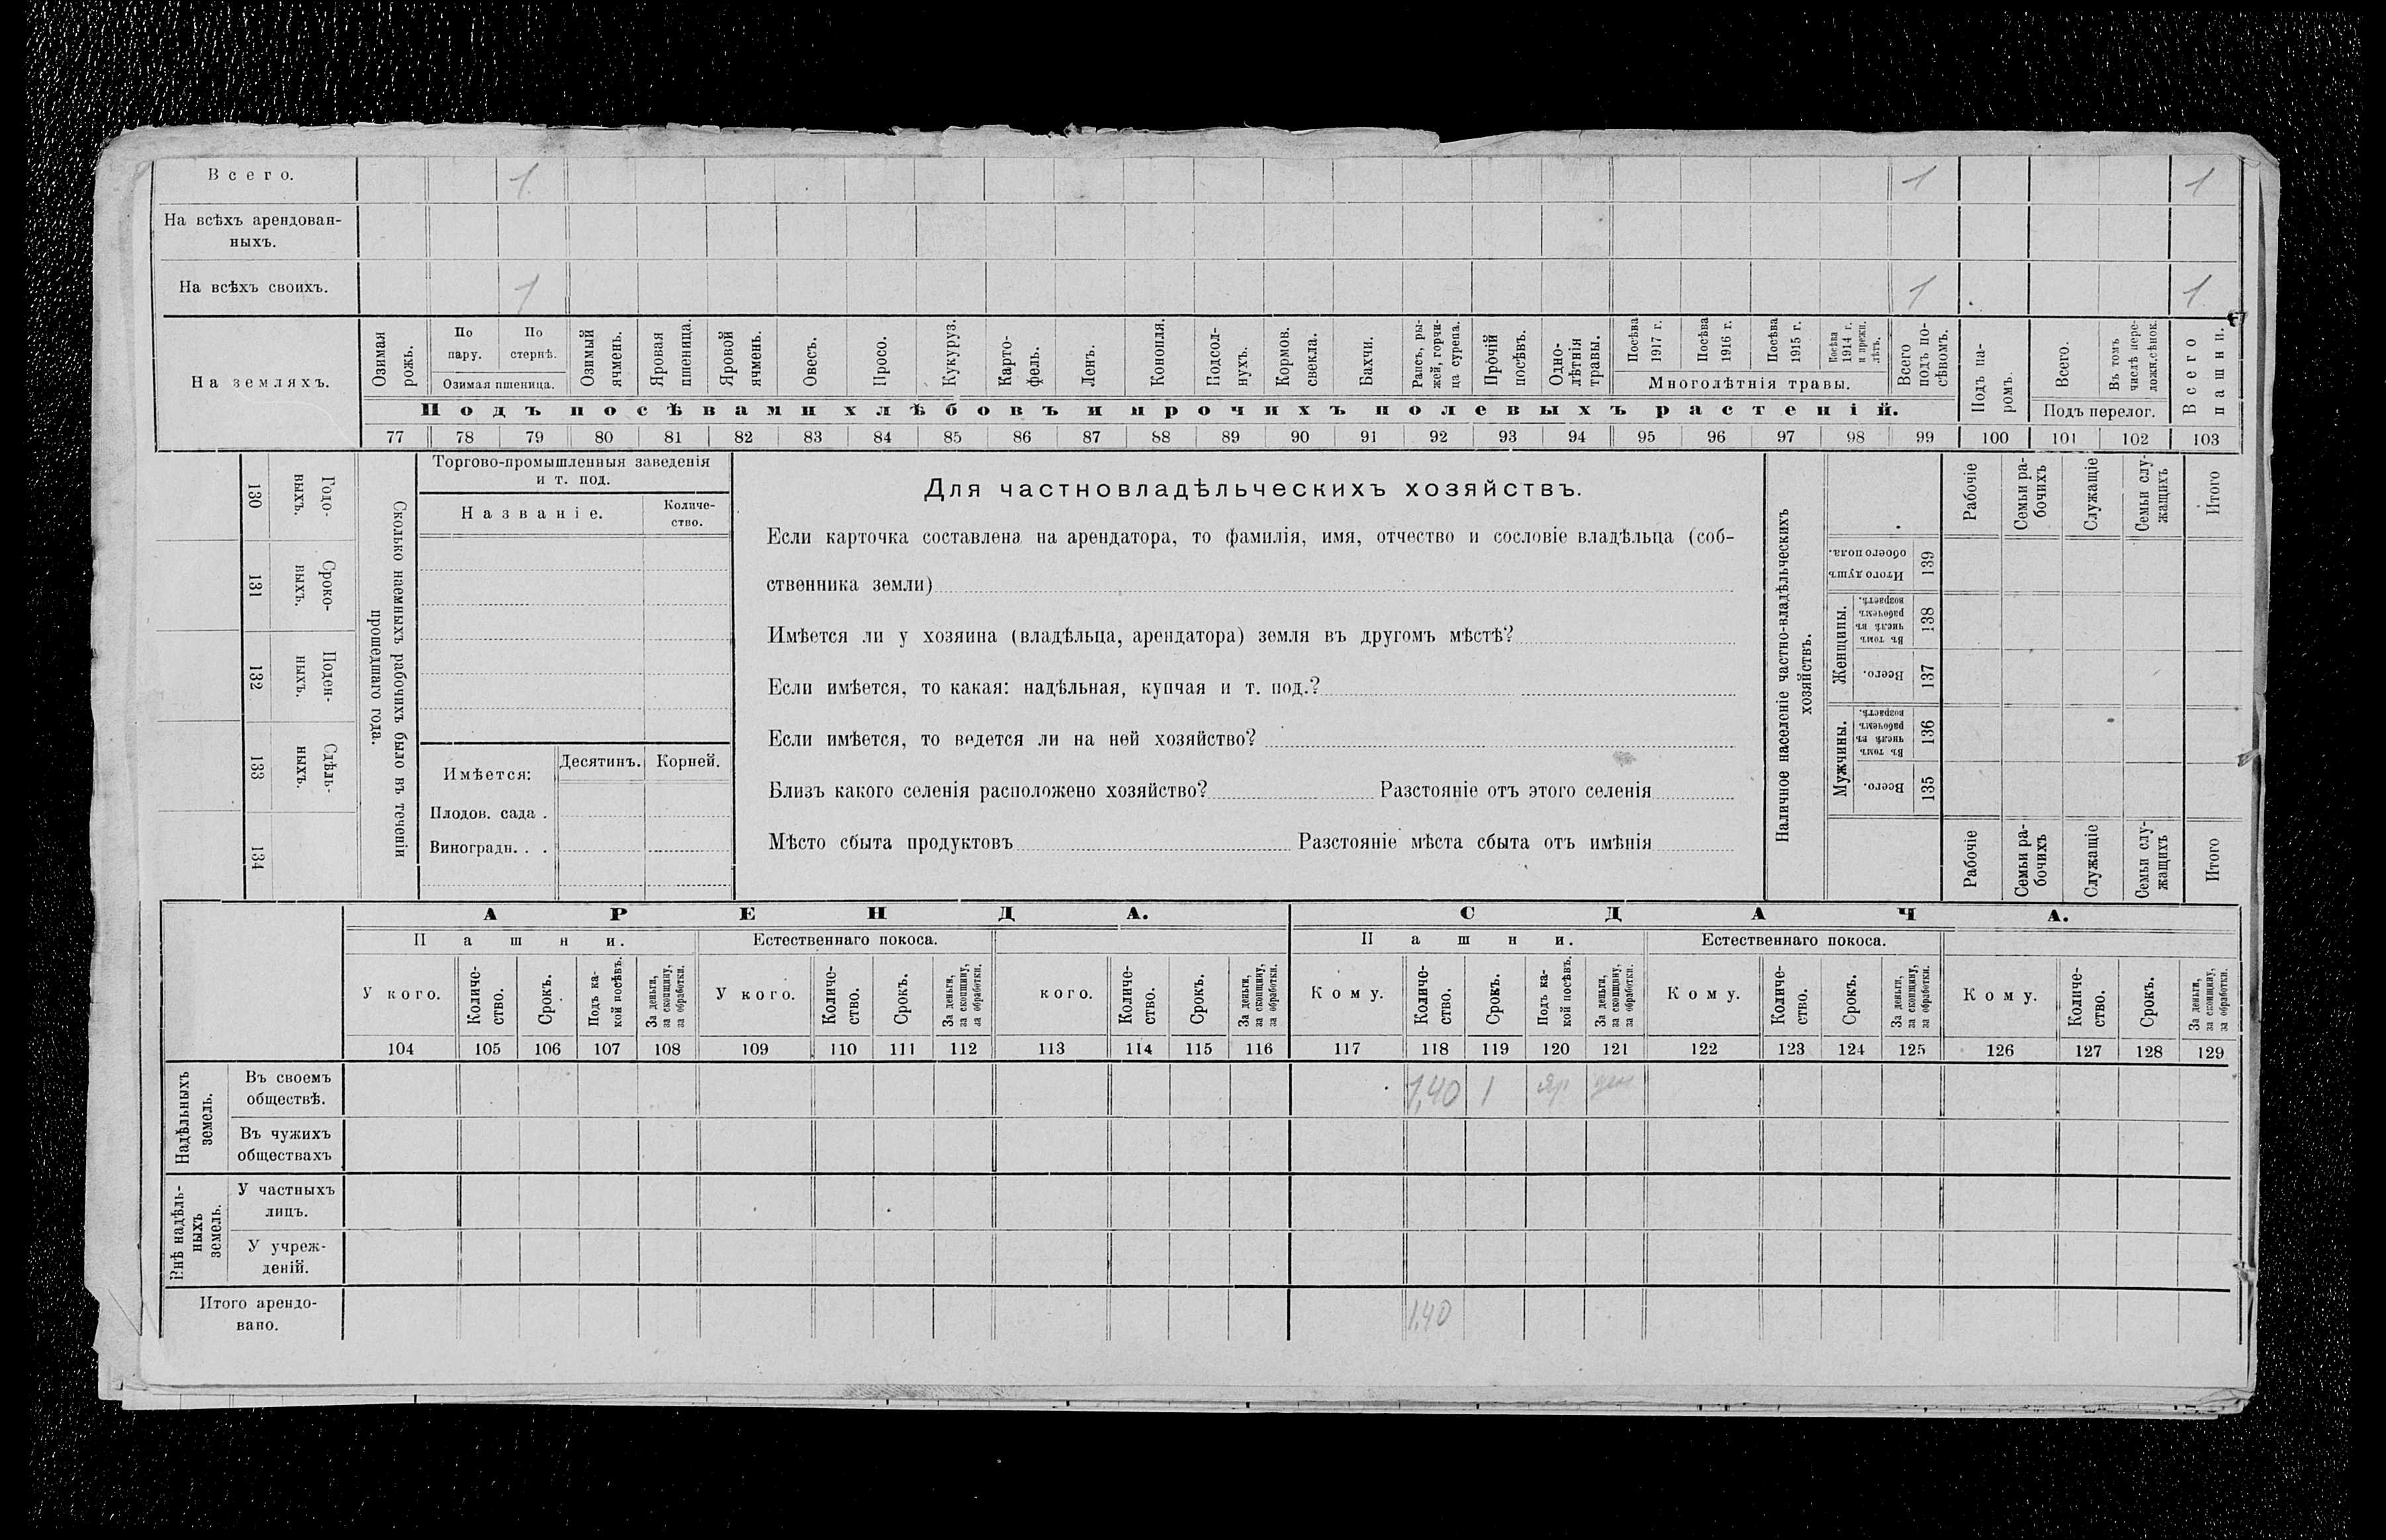 Всего. 1 1 1
На всѣхъ арендован-
ныхъ.
На всѣхъ своихъ. 1 1 1
На земляхъ.
Озимая рожь.
По пару.
По стернѣ.
Озимая пшеница.
Озимый ячмень.
Яровая пшеница.
Яровой ячмень.
Овесъ.
Просо.
Кукуруз.
Карто-
фель.
Ленъ.
Конопля.
Подсол-
нухъ.
Кормов. свекла.
Бахчи.
Рапсъ, ры-
жей, горчи-
ца сурепа.
Прочій посѣвъ.
Одно-
лѣтнія травы.
Посѣва 1917 г.
Посѣва 1916 г.
Посѣва 1915 г.
Посѣва 1914 г. и прежн. лѣтъ.
Многолѣтнія травы.
Всего подъ по-
сѣвомъ.
Подъ посѣвами хлѣбовъ и прочихъ полевыхъ растеній.
Подъ па-
ромъ.
Всего.
Въ томъ числѣ пере-
ложн.сѣнок.
Подъ перелог.
Всего пашни.
77 78 79 80 81 82 83 84 85 86 87 88 89 90 91 92 93 94 95 96 97 98 99 100 101 102 103
130 Годо-
ныхъ.
131 Сроко-
выхъ.
132 Поден-
ныхъ.
133 Сдѣль-
ныхъ.
134
Сколько наемныхъ рабочихъ было въ теченіи
прошедшаго года.
Торгово-промышленныя заведенія
и т. под.
Названіе.
Количе-
ство.
Имѣется: Десятинъ. Корней.
Плодов. сада .
Виноградн. . .
Для частновладѣльческихъ хозяйствъ.
Если карточка составлена на арендатора, то фамилія, имя, отчество и сословіе владѣльца (соб-
ственника земли)
Имѣется ли у хозяина (владѣльца, арендатора) земля въ другомъ мѣстѣ?
Если имѣется, то какая: надѣльная, купчая и т. под.?
Если имѣется, то ведется ли на ней хозяйство?
Близъ какого селенія расположено хозяйство? Разстояніе отъ этого селенія
Мѣсто сбыта продуктовъ Разстояніе мѣста сбыта отъ имѣнія
Наличное населеніе частно-владѣльческихъ
хозяйствъ.
Рабочіе
Семьи ра-
бочихъ
Служащіе
Семьи слу-
жащихъ
Итого
Итого душъ обоего пола. 139
Женщины.
Въ томъ числѣ въ рабочемъ возрастѣ. 138
Всего. 137
Мужчины.
Въ томъ числѣ въ рабочемъ возрастѣ. 136
Всего. 135
Рабочіе
Семьи ра-
бочихъ
Служащіе
Семьи слу-
жащихъ
Итого
АРЕНДА. СДАЧА.
Пашни. Естественнаго покоса. Пашни. Естественнаго покоса.
У кого.
Количе-
ство.
Срокъ.
Подъ ка-
кой посѣвъ.
За деньги, за скопщину, за обработки.
У кого.
Количе-
ство.
Срокъ.
За деньги, за скопщину, за обработки.
кого.
Количе-
ство.
Срокъ.
За деньги, за скопщину, за обработки.
Кому.
Количе-
ство.
Срокъ.
Подъ ка-
кой посѣвъ.
За деньги, за скопщину, за обработки.
Кому.
Количе-
ство.
Срокъ.
За деньги, за скопщину, за обработки.
Кому.
Количе-
ство.
Срокъ.
За деньги, за скопщину, за обработки.
104 105 106 107 108 109 110 111 112 113 114 115 116 117 118 119 120 121 122 123 124 125 126 127 128 129
Надѣльныхъ
земель.
Въ своемъ
обществѣ. 1,40 1 яр ден
Въ чужихъ
обществахъ
Внѣ надѣль-
ныхъ
земель.
У частныхъ
лицъ.
У учреж-
деній.
Итого арендо-
вано. 1,40